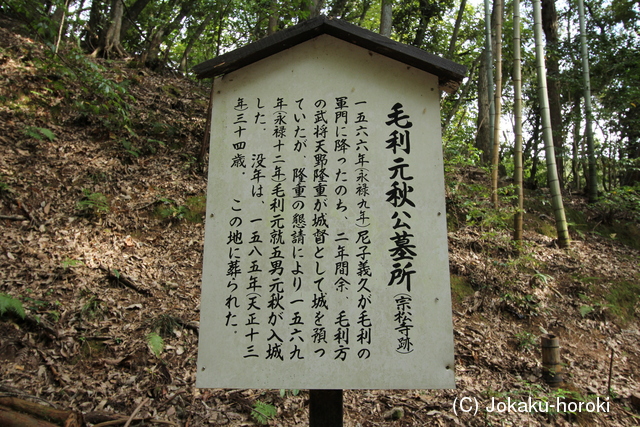 毛利元秋公墓所（宗松寺跡）
一五六六年（永禄九年）尼子義久が毛利の
軍門に降ったのち、二年間余、毛利方
の武将天野隆重が城督として城を預っ
ていたが、隆重の懇請により一五六九
年（永禄十二年）毛利元就五男元秋が入城
した。 没年は、一五八五年（天正十三
年）三十四歳． この地に葬られた．
(C) Jokaku-horoki.com